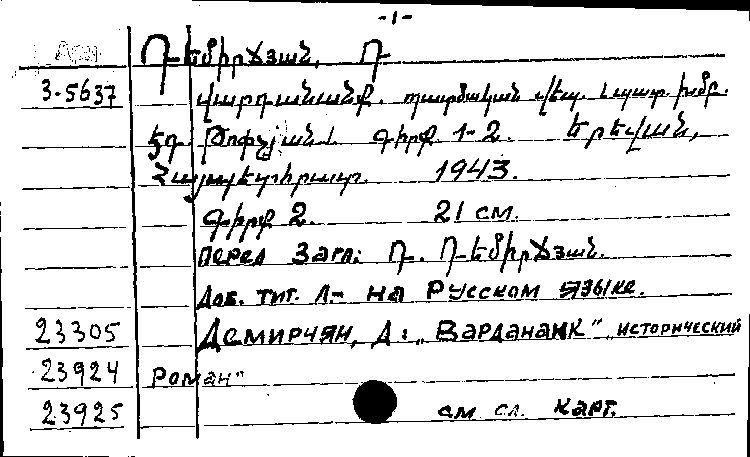 -1-
Դեմիրճյան, Դ
3-5637
Վարդանանք. պատմական վեպ. Լպատ. խմբ.
Եղ. Թոփչյան. գիրք 1-2. Երեվան,
Հայպետհրատ. 1943.
Գիրք 2. 21 см.
перед загл: Դ. Դեմիրճյան.
Доб. тит. л- на русском языке.
23305 Демирчян, Д: „Вардананк" „исторический
23924 роман"
23925 см сл. карт.